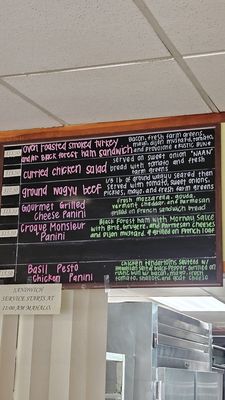 Bacon, fresh farm greens,
oven roasted smoked turkey
mayo, dijon mustard, tomato
and/or black forest ham sandwich
and provolone & rustic bun
Served on sweet onion "NAAN"
curried chicken salad
bread with tomato and fresh
farm greens.
1/3 lb of ground wagyu seared then
ground wagyu beef
served with tomato, sweet onion
pickles, mayo, and fresh farm greens
Gourmet Grilled
Cheese Panini
Fresh mozzarella, gouda,
vermont cheddar, and parmesan
grilled on french sandwich bread
Croque Monsieur
Panini
Black Forest ham with Mornay Sauce
with Brie, Gruyere, and Parmesan cheeses
and Dijon mustard & grilled on French roll
Basil Pesto
Chicken Panini
chicken tenderloins sauteed with
black pepper, grilled on
bun with bacon, mayo, fresh
tomato,
SANDWICH
SERVICE STARTS AT
11:00 AM MAHALO